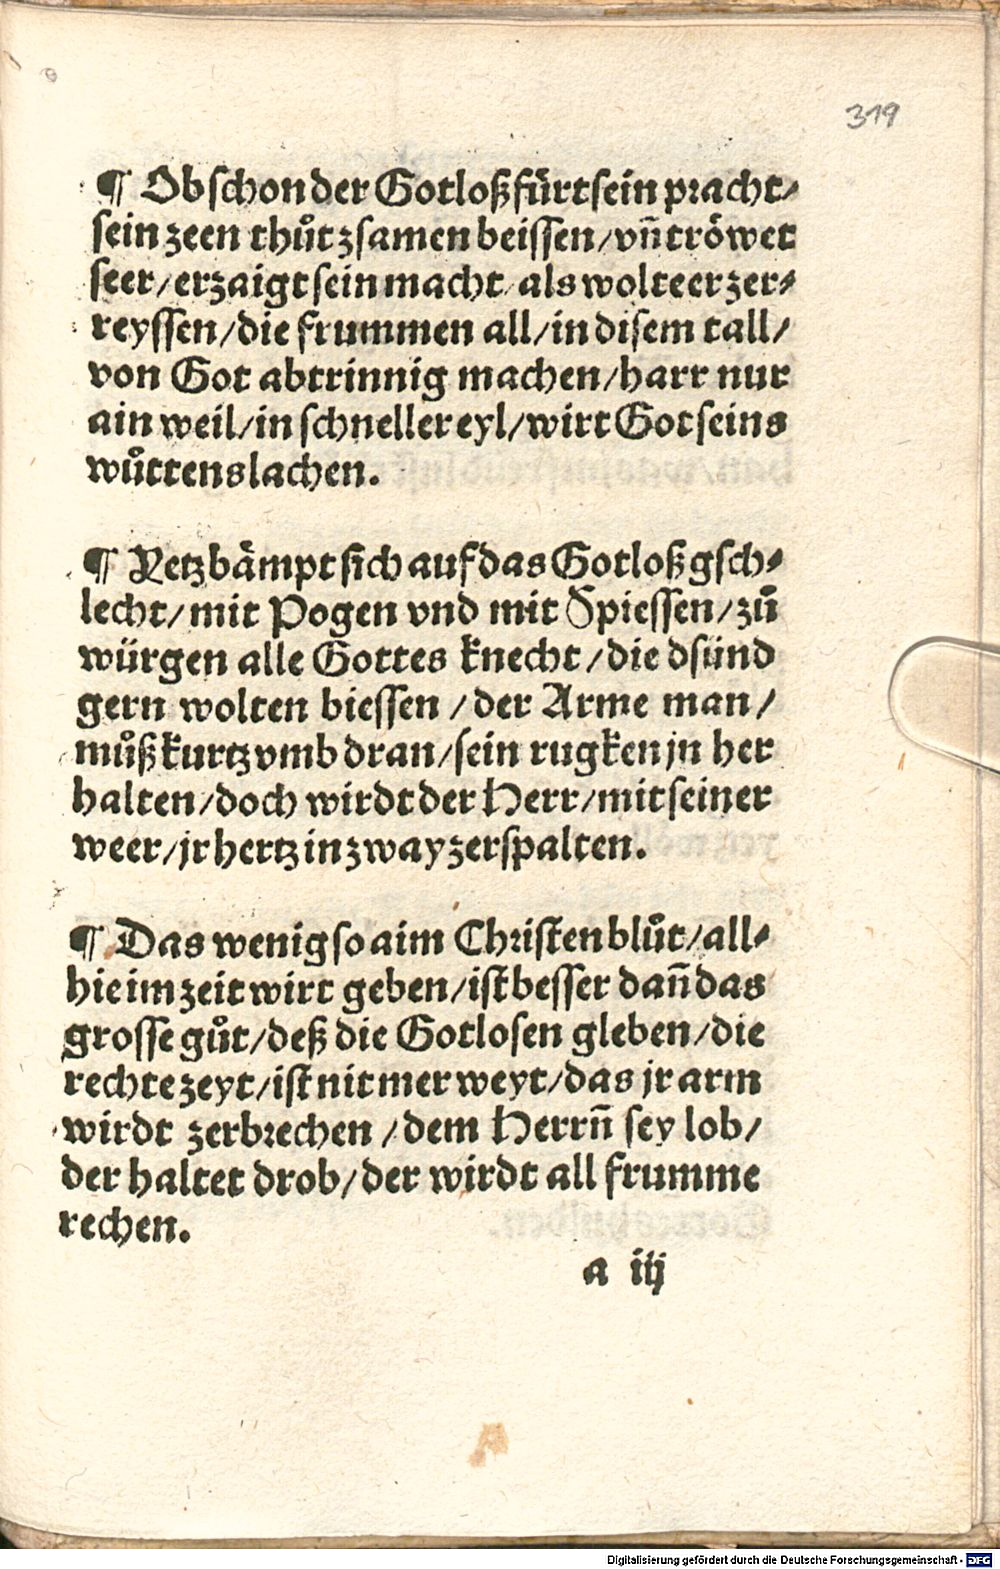 319
¶ Ob schon der Gotloß fürt sein pracht⸗
sein zeen thůt zsamen beissen/ vn̄ tröwet
seer/ erzaigt sein macht/ als wolte er zer⸗
reyssen/ die frummen all/ in disem tall/
von Got abtrinnig machen/ harr nur
ain weil/ in schneller eyl/ wirt Got seins
wůttens lachen.
¶ Yetz bämpt sich auf das Gotloß gsch⸗
lecht/ mit Pogen vnd mit Spiessen/ zů
würgen alle Gottes knecht/ die dsünd
gern wolten biessen/ der Arme man/
můß kurtz vmb dran/ sein rugken jn her
halten/ doch wirdt der Herr/ mit seiner
weer/ jr hertz in zway zerspalten.
¶ Das wenig so aim Christen blůt/ all⸗
hie im zeit wirt geben/ ist besser dan̄ das
grosse gůt/ deß die Gotlosen gleben/ die
rechte zeyt/ ist nit mer weyt/ das jr arm
wirdt zerbrechen/ dem Herrn̄ sey lob/
der haltet drob/ der wirdt all frumme
rechen.
a iij
Digitalisierung gefördert durch die Deutsche Forschungsgemeinschaft - DFG